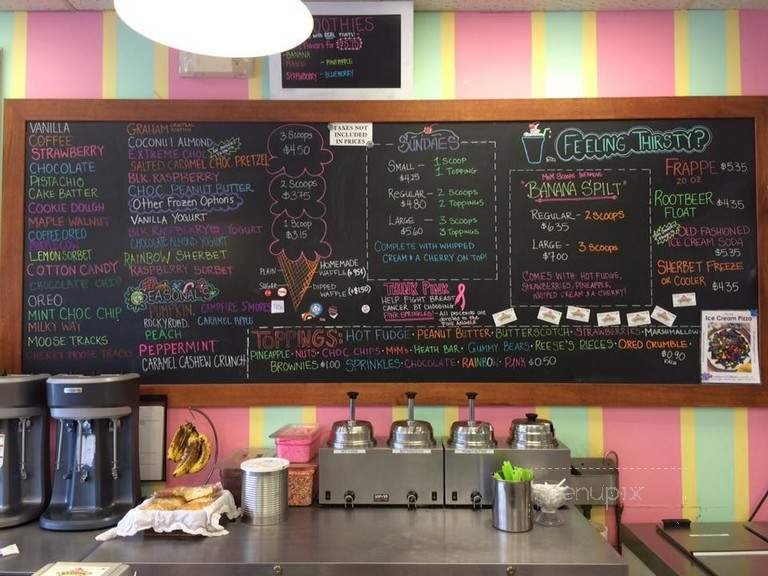 SMOOTHIES
BANANA
MANGO - PINEAPPLE
STRAWBERRY - BLUEBERRY
TAXES NOT
INCLUDED
IN PRICES
VANILLA
COFFEE
STRAWBERRY
CHOCOLATE
PISTACHIO
CAKE BATTER
COOKIE DOUGH
MAPLE WALNUT
COFFEE OREO
LEMON SORBET
COTTON CANDY
CHOCOLATE CHIP
OREO
MINT CHOC CHIP
MILKY WAY
MOOSE TRACKS
CHERRY MOOSE TRACKS
GRAHAM CENTRAL STATION
COCONUT ALMOND
EXTREME CHOC
SALTED CARAMEL CHOC PRETZEL
BLK RASPBERRY
CHOC PEANUT BUTTER
Other Frozen Options
VANILLA YOGURT
BLK RASPBERRY YOGURT
CHOCOLATE ALMOND YOGURT
RAINBOW SHERBET
RASPBERRY SORBET
SEASONALS
PUMPKIN CAMPFIRE S'MORE
ROCKY ROAD CARAMEL APPLE
PEACH
PEPPERMINT
CARAMEL CASHEW CRUNCH
3 Scoops
$4.50
2 Scoops
$3.75
1 Scoop
$3.15
PLAIN
SUGAR
HOMEMADE
WAFFLE (+95¢)
DIPPED
WAFFLE (+$1.50)
SUNDAES
SMALL - 1 SCOOP
$4.25 1 TOPPING
REGULAR - 2 SCOOPS
$4.80 2 TOPPINGS
LARGE - 3 SCOOPS
$5.60 3 TOPPINGS
COMPLETE WITH WHIPPED
CREAM & A CHERRY ON TOP!
THINK PINK
HELP FIGHT BREAST
CANCER BY CHOOSING
PINK SPRINKLES!
FEELING THIRSTY?
"BANANA SPLIT"
REGULAR - 2 SCOOPS
$6.35
LARGE - 3 SCOOPS
$7.00
COMES WITH HOT FUDGE,
STRAWBERRIES, PINEAPPLE,
WHIPPED CREAM & A CHERRY!
FRAPPE $5.35
20 OZ
ROOTBEER
FLOAT $4.35
OLD-FASHIONED
ICE CREAM SODA
$5.35
SHERBET FREEZE
OR COOLER $4.35
TOPPINGS: HOT FUDGE · PEANUT BUTTER · BUTTERSCOTCH · STRAWBERRIES · MARSHMALLOW
PINEAPPLE · NUTS · CHOC CHIPS · M&Ms · HEATH BAR · GUMMY BEARS · REESE'S PIECES · OREO CRUMBLE · $0.90 EACH
BROWNIES $1.00 SPRINKLES · CHOCOLATE · RAINBOW · PINK $0.50
Ice Cream Pizza
menupix